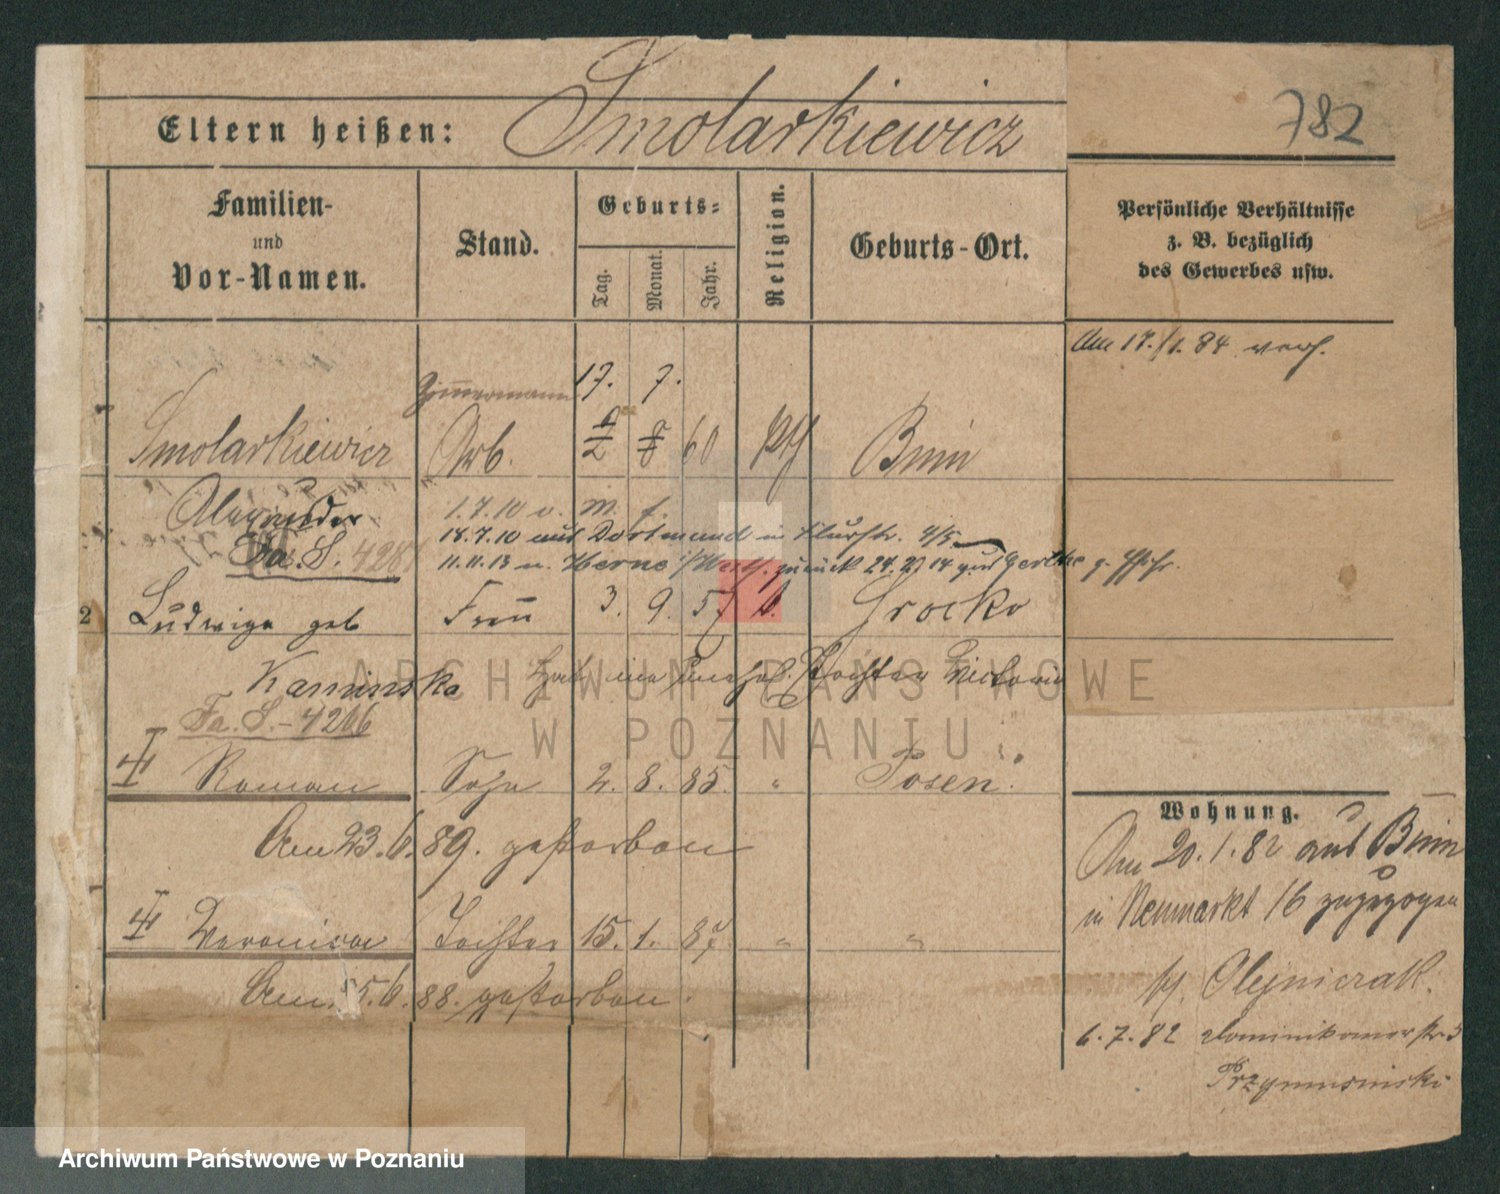 782
Eltern heißen: Smolarkiewicz
Familien- und Vor-Namen.
Stand.
Geburts-
Tag.
Monat.
Jahr.
Religion.
Geburts-Ort.
Persönliche Verhältnisse
z. B. bezüglich
des Gewerbes usw.
Am 17./1. 84 verh.
Zimmermann 17. 7.
Smolarkiewicz Arb. 60 Bnin
Alexander 1.7.10 v. M. f.
18.7.10 aus Dortmund in Flurstr. 4/5
Fa. S. 4281 11.11.13 n. Herne i/Westf. zurück 24.2.14 aus Gerthe
2 Ludwiga geb Frau 3. 9. 57 k. Grocko
Kaminska Hat eine Tochter Victoria
Fa. S. - 4266
Roman Sohn 2. 8. 85. " Posen.
Am 23.6.89. gestorben
Veronica Tochter 15. 1. 87 " "
Am 25.6.88. gestorben.
Wohnung.
Am 20.1.82 aus Bnin
in Neumarkt 16 zugezogen
bei Olejniczak.
6.7.82 Dominikanerstr. 3
Przymusinski
ARCHIWUM PAŃSTWOWE
W POZNANIU
Archiwum Państwowe w Poznaniu